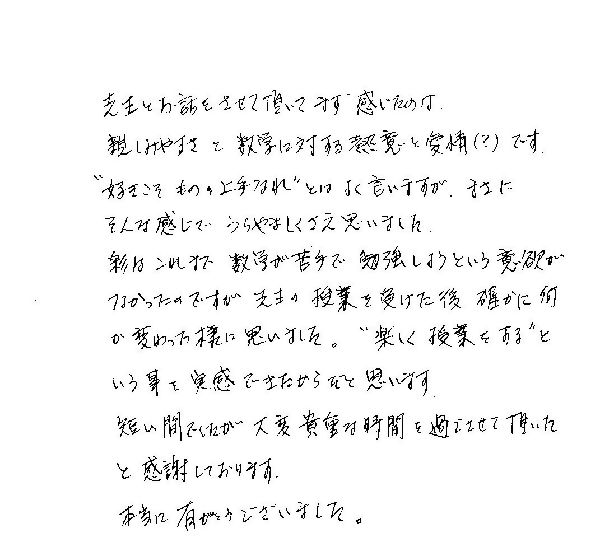 先生とお話をさせて頂いてまず感じたのは、
親しみやすさと数学に対する熱意と愛情(?)です。
"好きこそものの上手なれ"とはよく言いますが、まさに
そんな感じで うらやましくさえ思いました。
彩はこれまで 数学が苦手で 勉強しようという意欲が
なかったのですが 先生の授業を受けた後 確かに何
か変わった様に思いました。"楽しく授業をする"と
いう事を実感できたからだと思います。
短い間でしたが 大変貴重な時間を過ごさせて頂いた
と感謝しております。
本当に有がとうございました。